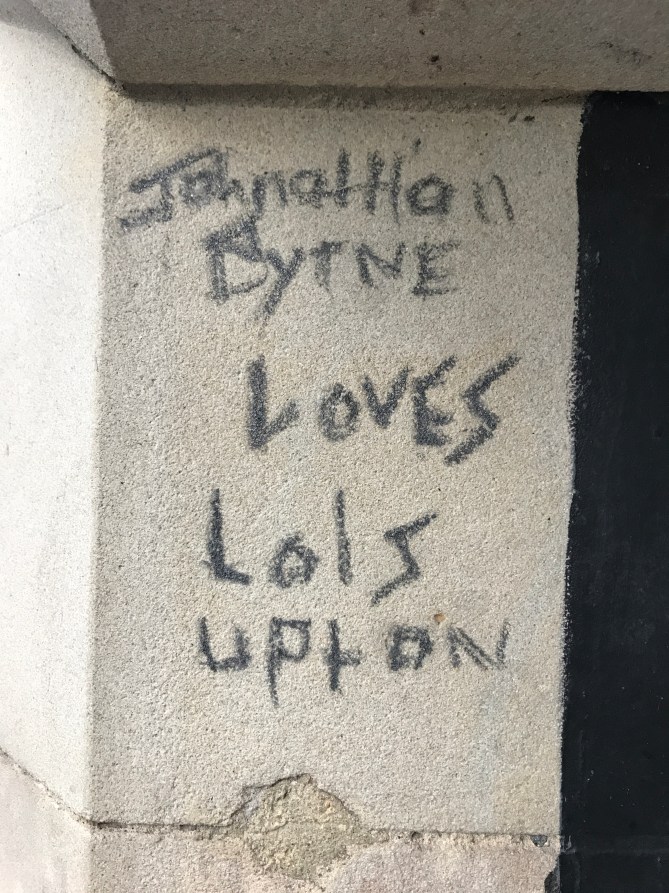 Johnathan
Byrne
LOVES
Lois
UPtON